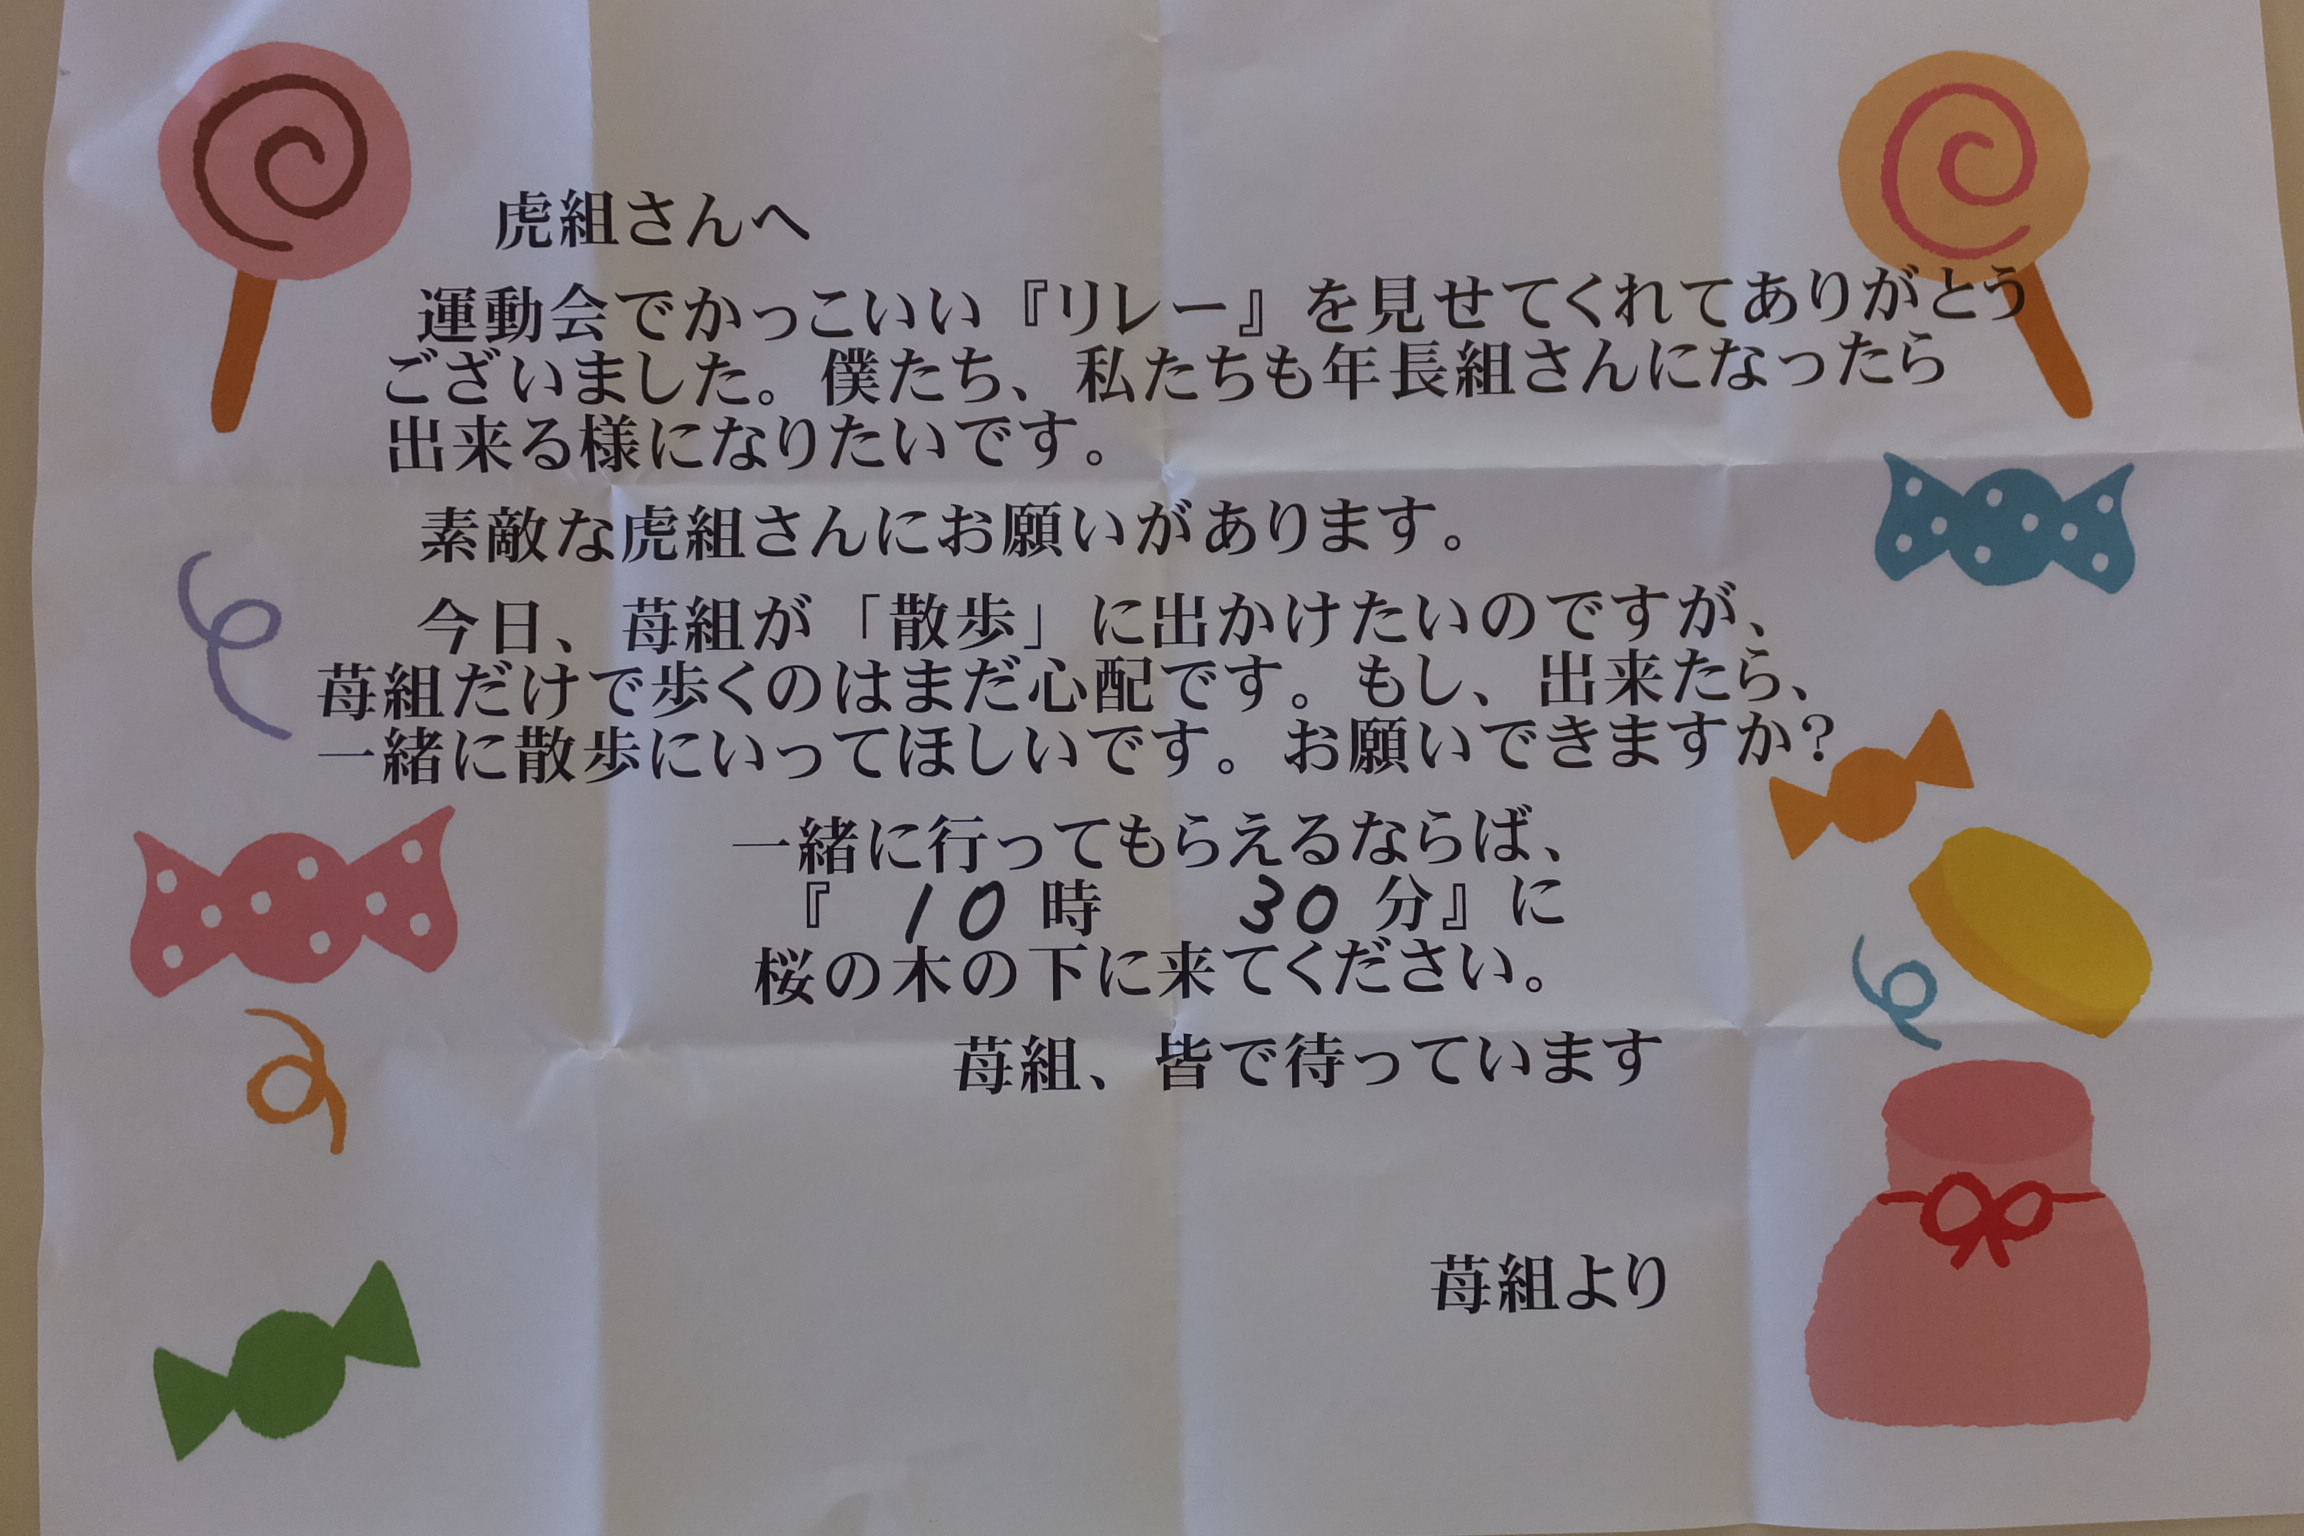 虎組さんへ
運動会でかっこいい『リレー』を見せてくれてありがとう
ございました。僕たち、私たちも年長組さんになったら
出来る様になりたいです。
素敵な虎組さんにお願いがあります。
今日、苺組が「散歩」に出かけたいのですが、
苺組だけで歩くのはまだ心配です。もし、出来たら、
一緒に散歩にいってほしいです。お願いできますか？
一緒に行ってもらえるならば、
『 10 時 30 分』に
桜の木の下に来てください。
苺組、皆で待っています
苺組より